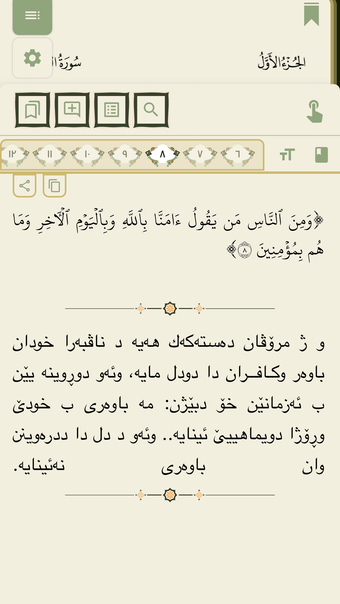 الجُزْءُ الأَوَّلُ
سُورَةُ
١٢ ١١ ١٠ ٩ ٨ ٧ ٦
﴿وَمِنَ ٱلنَّاسِ مَن يَقُولُ ءَامَنَّا بِٱللَّهِ وَبِٱلۡيَوۡمِ ٱلۡأٓخِرِ وَمَا
هُم بِمُؤۡمِنِينَ ٨﴾
و ژ مرۆڤان دەستەكەك هەیە د ناڤبەرا خودان
باوەر وكافـران دا دودل مایە، وئەو دوڕوینە یێن
ب ئەزمانێن خۆ دبێژن: مە باوەری ب خودێ
وڕۆژا دویماهییێ ئینایە.. وئەو د دل دا ددرەوینن
وان باوەری نەئینایە.